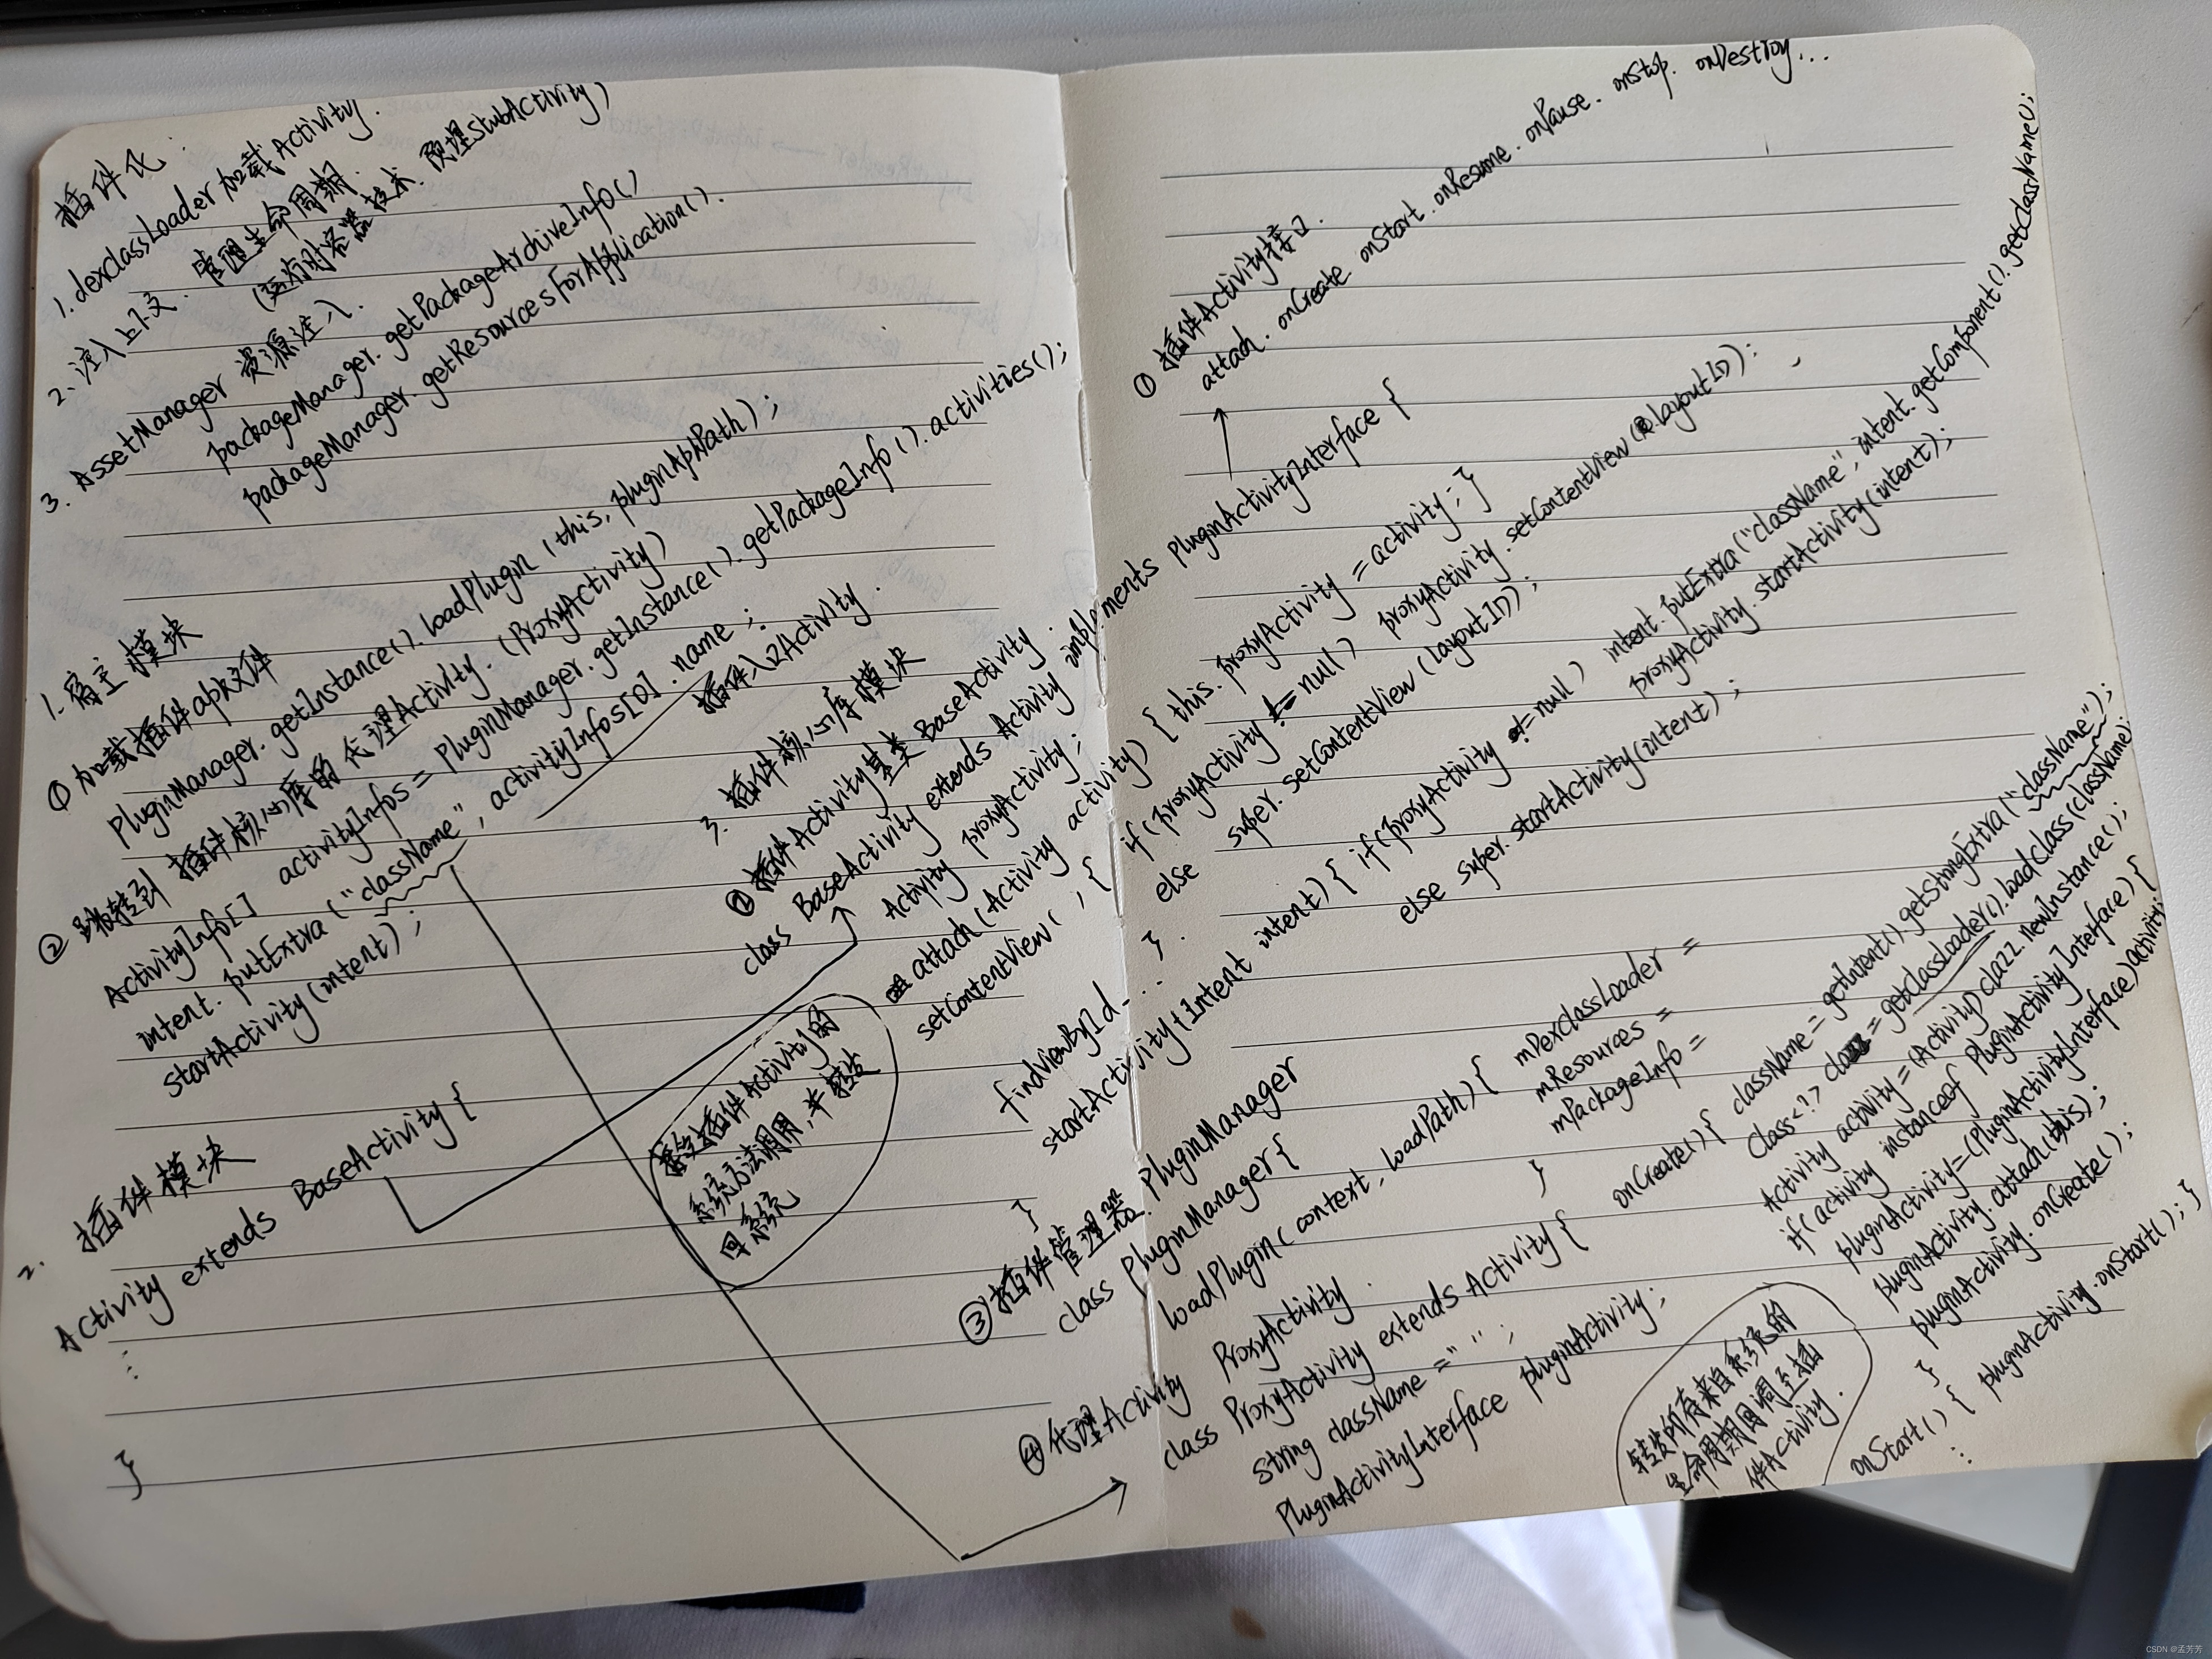 插件化:
1. dexclassLoader 加载 Activity.
2、注入上下文. 管理生命周期.
(运行时容器技术. 预埋StubActivity)
3. AssetManager 资源注入.
packageManager. getPackageArchiveInfo()
packageManager. getResourcesForApplication().
1. 宿主模块
① 加载插件apk文件
PluginManager. getInstance(). loadPlugin (this, pluginApkPath);
② 跳转到 插件核心库的代理Activity. (ProxyActivity)
ActivityInfo[] activityInfos = PluginManager. getInstance(). getPackageInfo(). activities();
intent. putExtra ("className", activityInfos[0]. name);
startActivity(intent);
插件入口Activity.
2. 插件模块
Activity extends BaseActivity {
⋮
}
3. 插件核心库模块
① 插件Activity接口.
attach. onCreate. onStart. onResume. onPause. onStop. onDestroy...
② 插件Activity基类 BaseActivity.
class BaseActivity extends Activity implements PluginActivityInterface {
Activity proxyActivity;
attach(Activity activity) { this. proxyActivity = activity; }
setContentView( ) { if(proxyActivity != null) proxyActivity. setContentView(R.layoutID);
else super. setContentView(layoutID);
}.
findViewById...
startActivity(Intent intent) { if(proxyActivity != null) intent. putExtra("className", intent. getComponent(). getClassName());
proxyActivity. startActivity(intent);
else super. startActivity(intent);
}
接受插件Activity的
系统方法调用,并转发
回系统
③ 插件管理器. PluginManager
class PluginManager {
loadPlugin( context, loadPath) { mDexclassLoader =
mResources =
mPackageInfo =
}
④ 代理Activity ProxyActivity.
class ProxyActivity extends Activity {
String className = " ";
PluginActivityInterface pluginActivity;
onCreate() { className = getIntent(). getStringExtra("className");
Class<?> clazz = getClassLoader(). loadClass(className);
Activity activity = (Activity) clazz. newInstance();
if( activity instanceof PluginActivityInterface) {
pluginActivity = (PluginActivityInterface) activity;
pluginActivity. attach(this);
pluginActivity. onCreate();
}
onStart() { pluginActivity. onStart(); }
⋮
转发所有来自系统的
生命周期回调至插
件Activity.
CSDN @孟芳芳